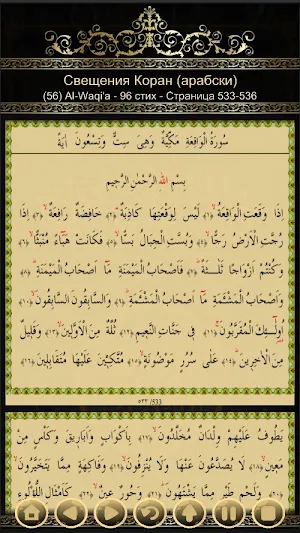 Свещения Коран (арабски)
(56) Al-Waqi'a - 96 стих - Страница 533-536
سُورَةُ الْوَاقِعَةِ مَكِّيَّةٌ وَهِيَ سِتٌّ وَتِسْعُونَ اٰيَةً
بِسْمِ اللهِ الرَّحْمٰنِ الرَّحِيمِ
اِذَا وَقَعَتِ الْوَاقِعَةُ ﴿١﴾ لَيْسَ لِوَقْعَتِهَا كَاذِبَةٌ ﴿٢﴾ خَافِضَةٌ رَافِعَةٌ ﴿٣﴾ اِذَا
رُجَّتِ الْاَرْضُ رَجًّا ﴿٤﴾ وَبُسَّتِ الْجِبَالُ بَسًّا ﴿٥﴾ فَكَانَتْ هَبَآءً مُنْبَثًّا ﴿٦﴾
وَكُنْتُمْ اَزْوَاجًا ثَلٰثَةً ﴿٧﴾ فَاَصْحَابُ الْمَيْمَنَةِ مَٓا اَصْحَابُ الْمَيْمَنَةِ ﴿٨﴾
وَاَصْحَابُ الْمَشْـَٔمَةِ مَٓا اَصْحَابُ الْمَشْـَٔمَةِ ﴿٩﴾ وَالسَّابِقُونَ السَّابِقُونَ ﴿١٠﴾
اُولٰٓئِكَ الْمُقَرَّبُونَ ﴿١١﴾ فِي جَنَّاتِ النَّعِيمِ ﴿١٢﴾ ثُلَّةٌ مِنَ الْاَوَّلِينَ ﴿١٣﴾ وَقَلِيلٌ
مِنَ الْاٰخِرِينَ ﴿١٤﴾ عَلٰى سُرُرٍ مَوْضُونَةٍ ﴿١٥﴾ مُتَّكِـِٔينَ عَلَيْهَا مُتَقَابِلِينَ ﴿١٦﴾
٥٣٣ /533
يَطُوفُ عَلَيْهِمْ وِلْدَانٌ مُخَلَّدُونَ ﴿١٧﴾ بِاَكْوَابٍ وَاَبَارِيقَ وَكَأْسٍ مِنْ
مَعِينٍ ﴿١٨﴾ لَا يُصَدَّعُونَ عَنْهَا وَلَا يُنْزِفُونَ ﴿١٩﴾ وَفَاكِهَةٍ مِمَّا يَتَخَيَّرُونَ
﴿٢٠﴾ وَلَحْمِ طَيْرٍ مِمَّا يَشْتَهُونَ ﴿٢١﴾ وَحُورٌ عِينٌ ﴿٢٢﴾ كَاَمْثَالِ اللُّؤْلُؤِ